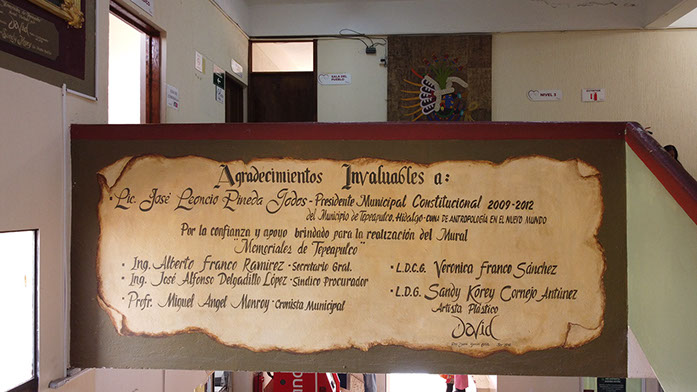 David
SALA DEL PUEBLO
NIVEL 2
Agradecimientos Invaluables a:
• Lic. José Leoncio Pineda Godos - Presidente Municipal Constitucional 2009-2012
del Municipio de Tepeapulco, Hidalgo - CUNA DE ANTROPOLOGÍA EN EL NUEVO MUNDO
Por la confianza y apoyo brindado para la realización del Mural
"Memoriales de Tepeapulco"
• Ing. Alberto Franco Ramírez - Secretario Gral.
• Ing. José Alfonso Delgadillo López - Síndico Procurador
• Profr. Miguel Angel Monroy - Cronista Municipal
• L.D.C.G. Veronica Franco Sánchez
• L.D.G. Sandy Korey Cornejo Antúnez
Artista Plástico
David